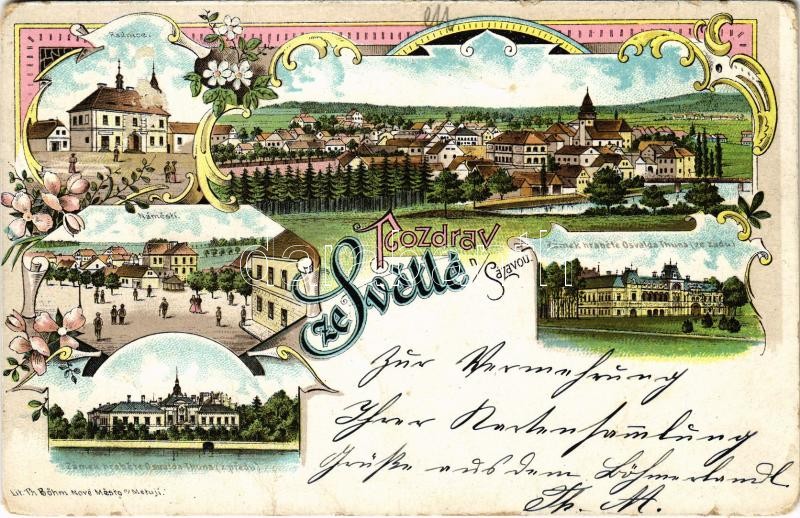 Radnice.
Náměstí.
Pozdrav
ze Světlé
n/Sázavou.
Zámek hraběte Osvalda Thuna (ze zadu)
Zámek hraběte Osvalda Thuna (z předu)
Zur Vermehrung
Ihrer Kartensammlung
Grüße aus dem Böhmerlandl
Th. M.
Lit. Th. Böhm Nové Město n/Metují.